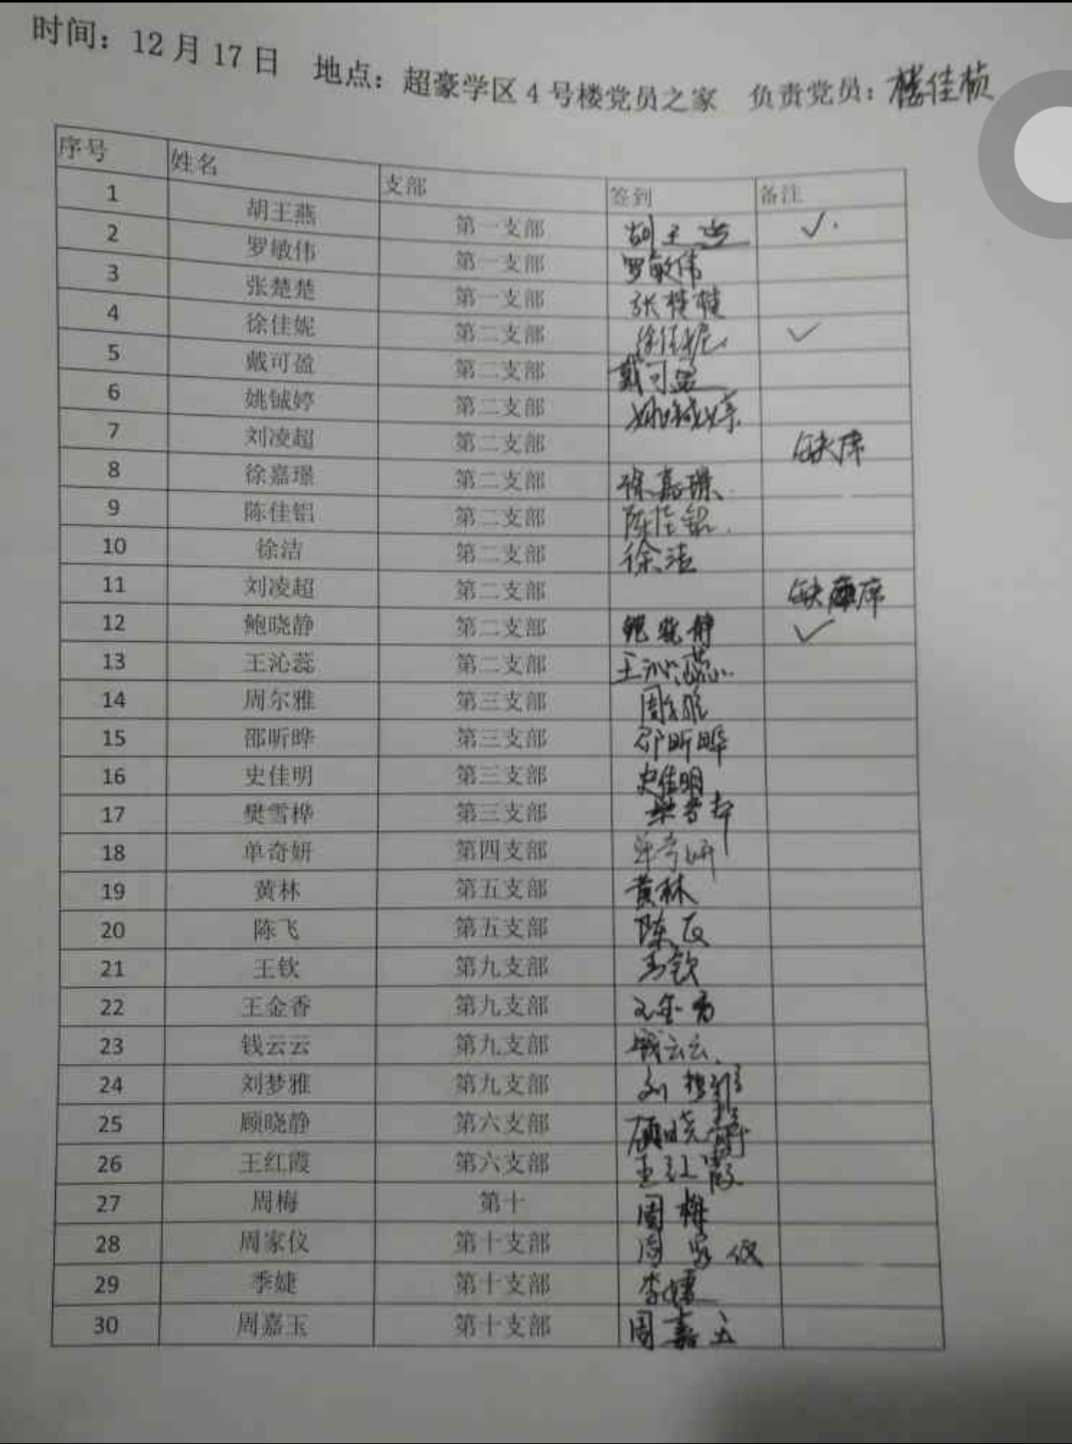 时间：12月17日 地点：超豪学区4号楼党员之家 负责党员：楼佳桢
序号 姓名 支部 签到 备注
1 胡王燕 第一支部 胡王燕 ✓
2 罗敏伟 第一支部 罗敏伟
3 张楚楚 第一支部 张楚楚
4 徐佳妮 第二支部 徐佳妮 ✓
5 戴可盈 第二支部 戴可盈
6 姚铖婷 第二支部 姚铖婷
7 刘凌超 第二支部 缺席
8 徐嘉璟 第二支部 徐嘉璟
9 陈佳铝 第二支部 陈佳铝
10 徐洁 第二支部 徐洁
11 刘凌超 第二支部 缺席
12 鲍晓静 第二支部 鲍晓静 ✓
13 王沁蕊 第二支部 王沁蕊
14 周尔雅 第三支部 周尔雅
15 邵昕晔 第三支部 邵昕晔
16 史佳明 第三支部 史佳明
17 樊雪桦 第三支部
18 单奇妍 第四支部 单奇妍
19 黄林 第五支部 黄林
20 陈飞 第五支部 陈飞
21 王钦 第九支部 王钦
22 王金香 第九支部 王金香
23 钱云云 第九支部 钱云云
24 刘梦雅 第九支部 刘梦雅
25 顾晓静 第六支部 顾晓静
26 王红霞 第六支部 王红霞
27 周梅 第十 周梅
28 周家仪 第十支部 周家仪
29 季婕 第十支部 季婕
30 周嘉玉 第十支部 周嘉玉